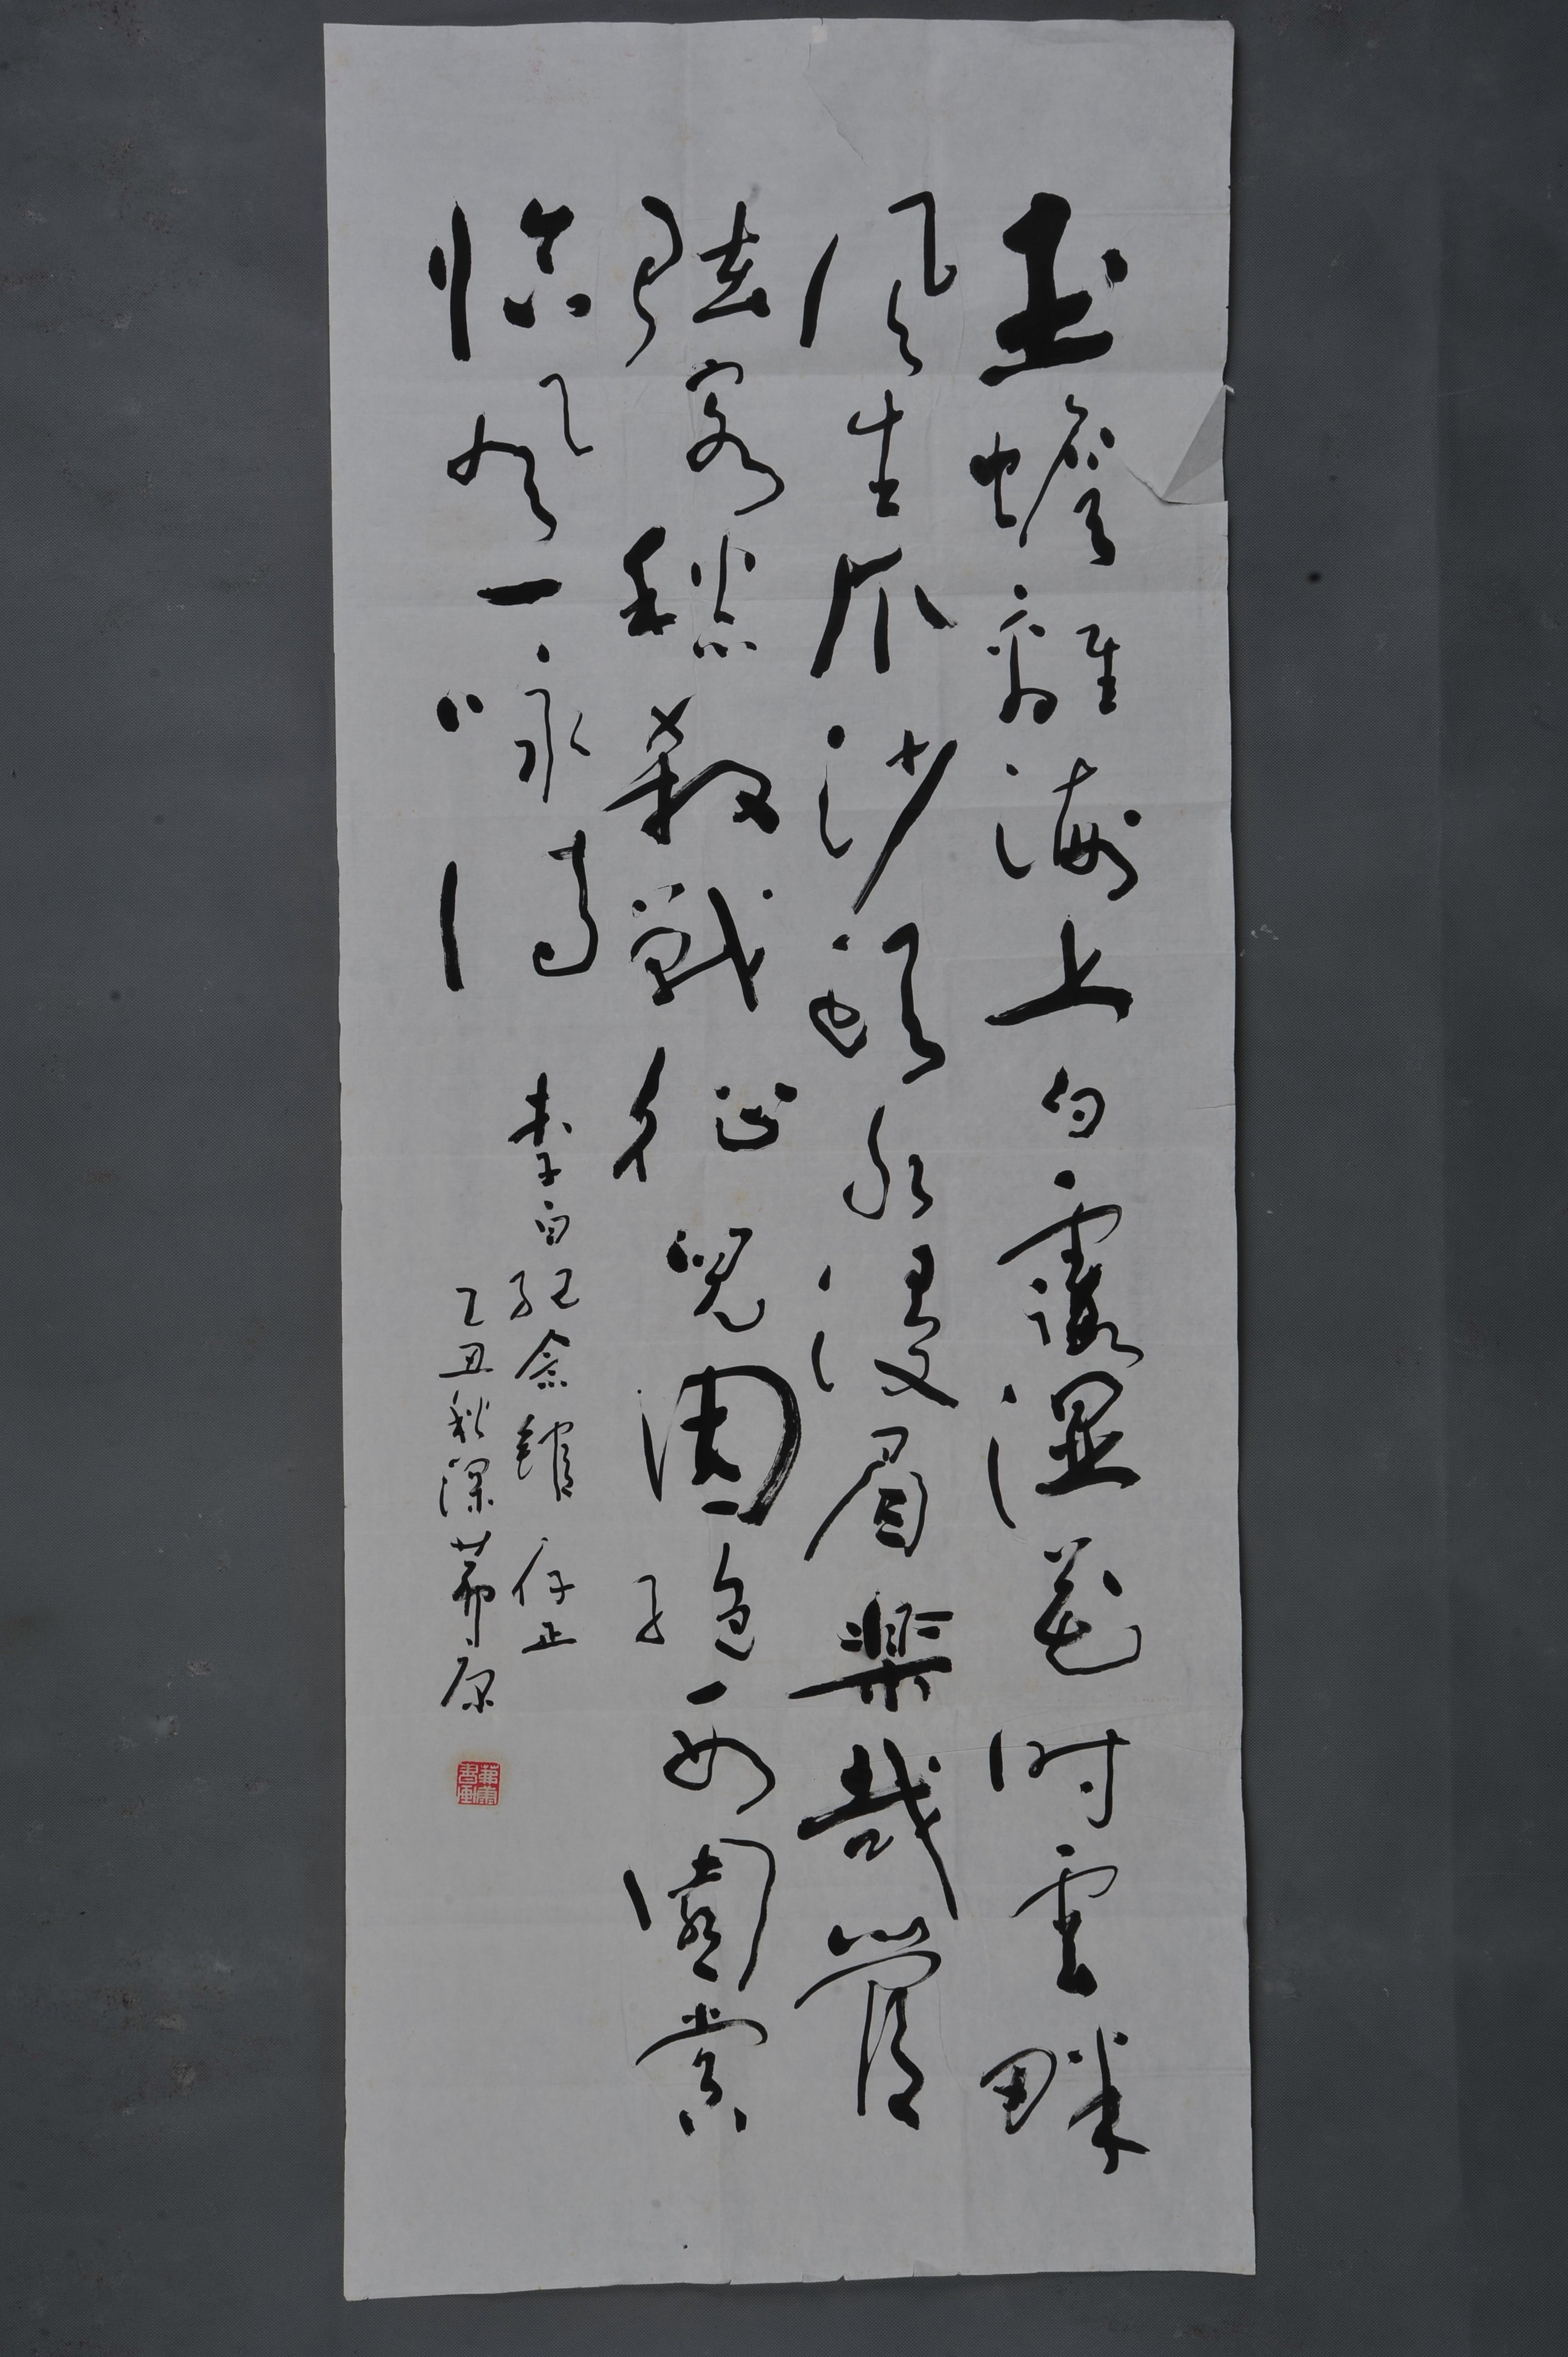 玉蟾離海上白露濕花時雲畔
風生爪沙頭水浸眉樂哉管
弦客愁殺戰征兒因絕西園賞
臨風一詠詩
李白紀念館 存正
乙丑秋深